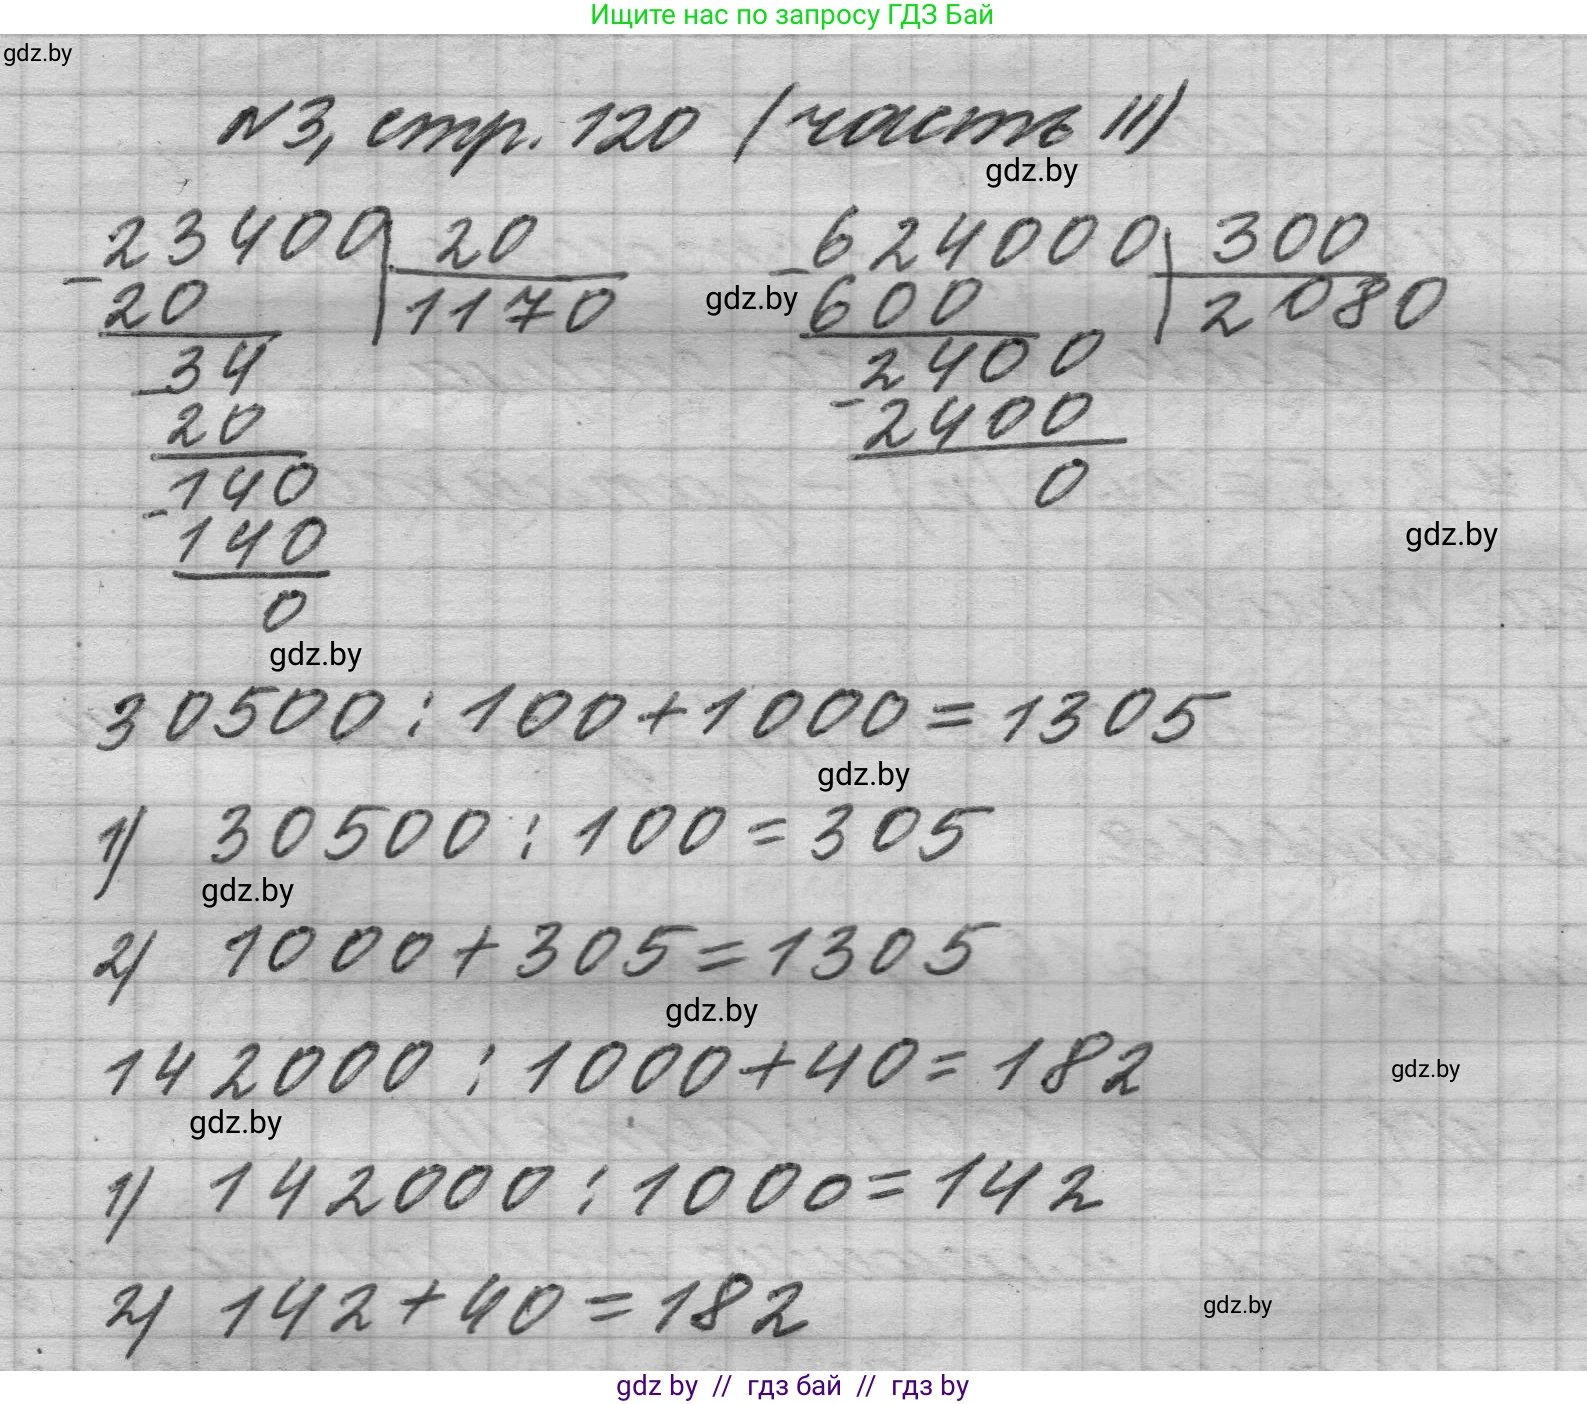 Ищите нас по запросу ГДЗ Бай
gdz.by
№3, стр. 120 (часть II)
gdz.by
23400 20
- 20 1170
34
- 20
140
- 140
0
gdz.by
624000 300
gdz.by
- 600 2080
2400
- 2400
0
gdz.by
30500 : 100 + 1000 = 1305
gdz.by
1) 30500 : 100 = 305
gdz.by
2) 1000 + 305 = 1305
gdz.by
142000 : 1000 + 40 = 182
gdz.by
gdz.by
1) 142000 : 1000 = 142
2) 142 + 40 = 182
gdz.by
gdz by // гдз бай // гдз by